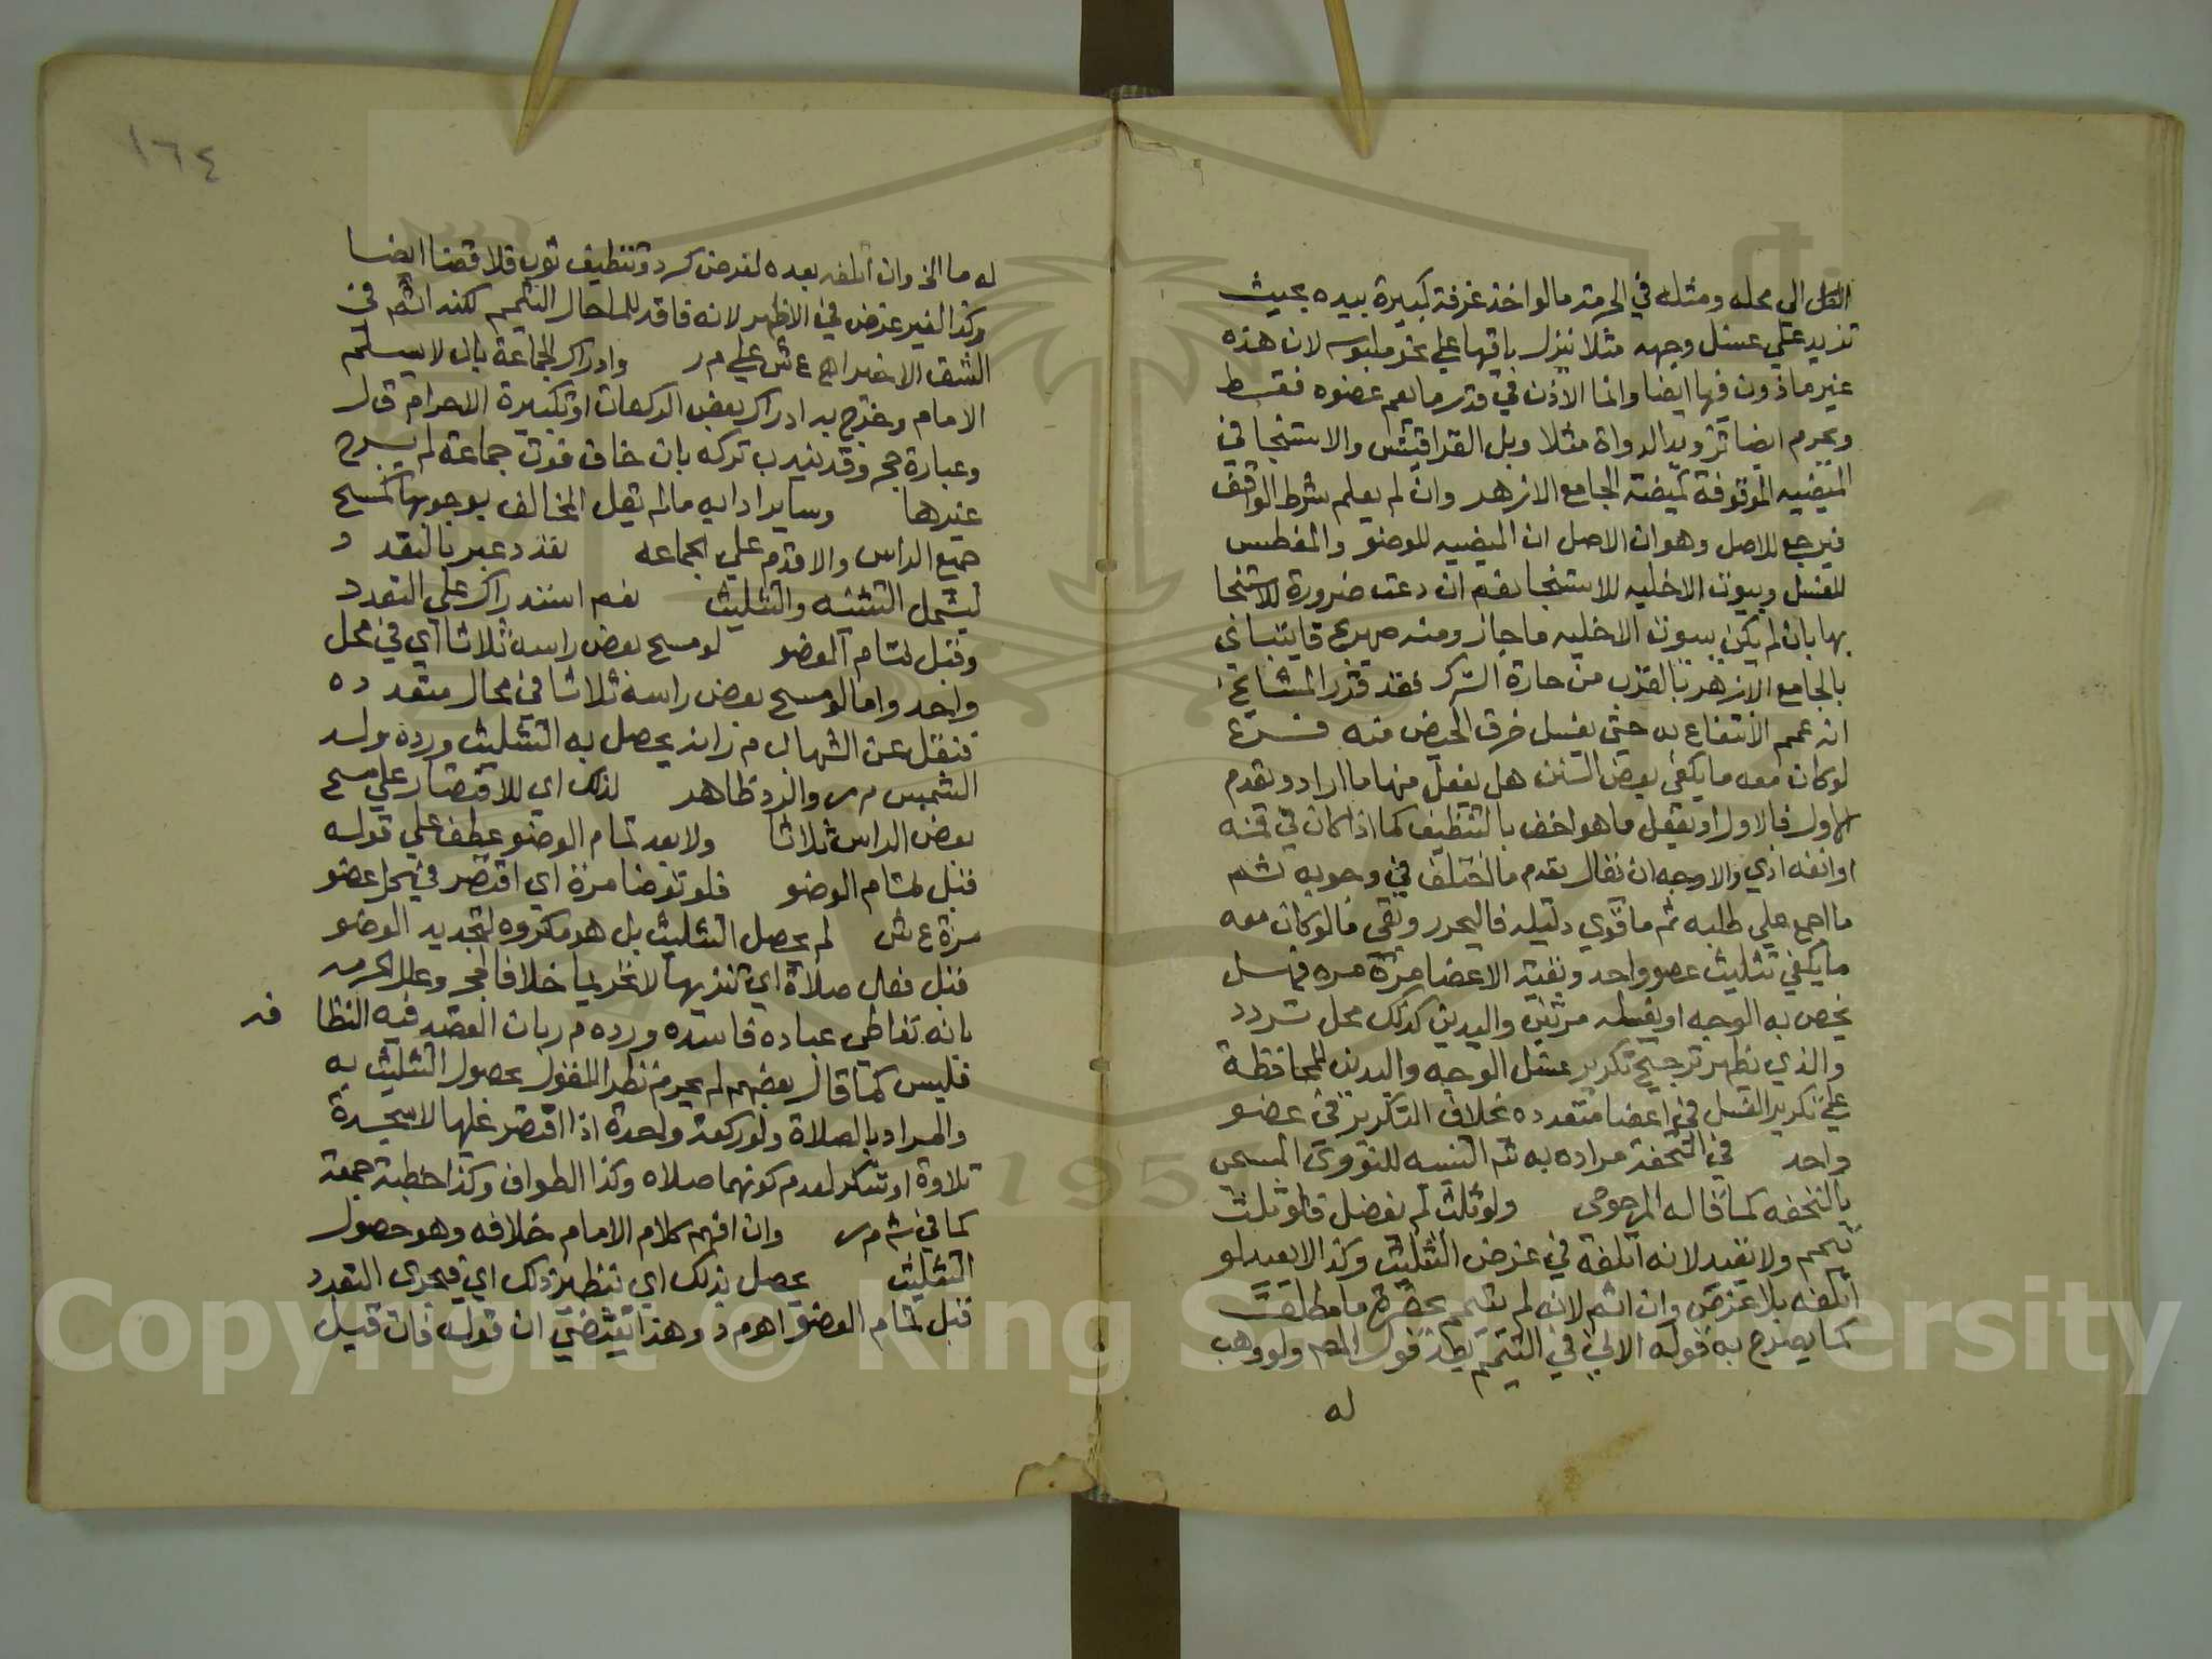 الى محله ومثله في الحرمة ما لو اخذ غرفة كبيرة بيده بحيث
تزيد على غسل وجهه مثلا ينزل باقيها على نحو ملبوسه لان هذه
غير ماذون فيها ايضا وانما الاذن في قدر ما يعم عضوه فقط
ويحرم ايضا تزويد الدواة مثلا وبل القراقيش والاستنجا في
الميضيه الموقوفة كميضة الجامع الازهر وان لم يعلم شرط الواقف
فيرجع للاصل وهو ان الاصل ان الميضيه للوضو والمغطس
للغسل وبيوت الاخليه للاستنجا نعم ان دعت ضرورة للاستنجا
بها بان لم يكن ببيوت الاخليه ما جاز ومنه صهريج قايتباي
بالجامع الازهر بالقرب من حارة الترك فقد قرر المشايخ
انه عمم الانتفاع به حتى بغسل خرق الحيض منه فرع
لو كان معه ما يكفي بعض السنن هل يفعل منها ما اراد و يقدم
الاول فالاول او يفعل ما هو اخص بالتنظيف كما اذا كان في فمه
او انفه اذي والاوجه ان يقال يقدم ما اختلف في وجوبه ثم
ما اجمع على طلبه ثم ما قوي دليله فاليحرر وبقي ما لو كان معه
ما يكفي تثليث عضو واحد وبقية الاعضا مرة مره فهل
يخص به الوجه او يغسله مرتين واليدين كذلك محل تردد
والذي يظهر ترجيح تكرير غسل الوجه واليدين للمحافظة
على تكرير الغسل في اعضا متعدده بخلاف التكرير في عضو
واحد في التحفة مراده به ثم التنبيه للنووي المسمى
بالتحفه كما قاله المرحومي ولو ثلث لم يفضل فلو ثلث
تيمم ولا يعيد لانه اتلفه في غرض التثليث وكذا لا يعيد لو
اتلفه بلا غرض وان اثم لانه لم يتيمم بحضرة ما مطلقا
كما يصرح به قوله الاتي في التيمم قول المص ولو وهب
له
١٦٤
له ما الخ وان اتلفه بعده لغرض كبرد وتنظيف ثوب فلا قضا ايضا
وكذا لغير غرض في الاظهر لانه فاقد للما حال التيمم لكنه اثم في
الشق الاخير اهـ ع ش على م ر وادراك الجماعة بان لا يسلم
الامام وخرج به ادراك بعض الركعات او تكبيرة الاحرام ق ل
وعبارة حج وقد يندب تركه بان خاف فوت جماعة لم يرج
غيرها وساير ادابه ما لم يقل المخالف بوجوبها كمسح
جميع الراس والا قدم على الجماعه تعدد عبر بالتعدد
ليشمل التثنيه والتثليث نعم استدراك على التعدد
وقبل تمام الوضو لو مسح بعض راسه ثلاثا اي في محل
واحد واما لو مسح بعض راسه ثلاثا في محال متعدده
فنقل عن الشهاب م ر انه يحصل به التثليث ورده ولد
الشمس م ر والرد ظاهر لذلك اي للاقتصار على مسح
بعض الراس ثلاثا ولا بعد تمام الوضو عطف على قوله
قبل تمام الوضو فلو توضا مرة اي اقتصر في كل عضو
مرة ع ش لم يحصل التثليث بل هو مكروه لتجديد الوضو
قبل فعل صلاة اي تنزيها لا تحريما خلافا لحج وعلل الحرمه
بانه تعاطي عباده فاسده ورده م ر بان القصد فيه النظافه
فليس كما قال بعضهم لم يحرم نظرا للقول بحصول التثليث به
والمراد بالصلاة ولو ركعة واحدة اذا اقتصر عليها لا سجدة
تلاوة او شكر لعدم كونهما صلاه وكذا الطواف وكذا خطبة جمعة
كما في ش م ر وان افهم كلام الامام خلافه وهو حصول
التثليث يحصل بذلك اي تنظير ذلك اي فيجزى التعدد
قبل تمام العضو اهـ م د وهذا يقتضي ان قوله فان قيل